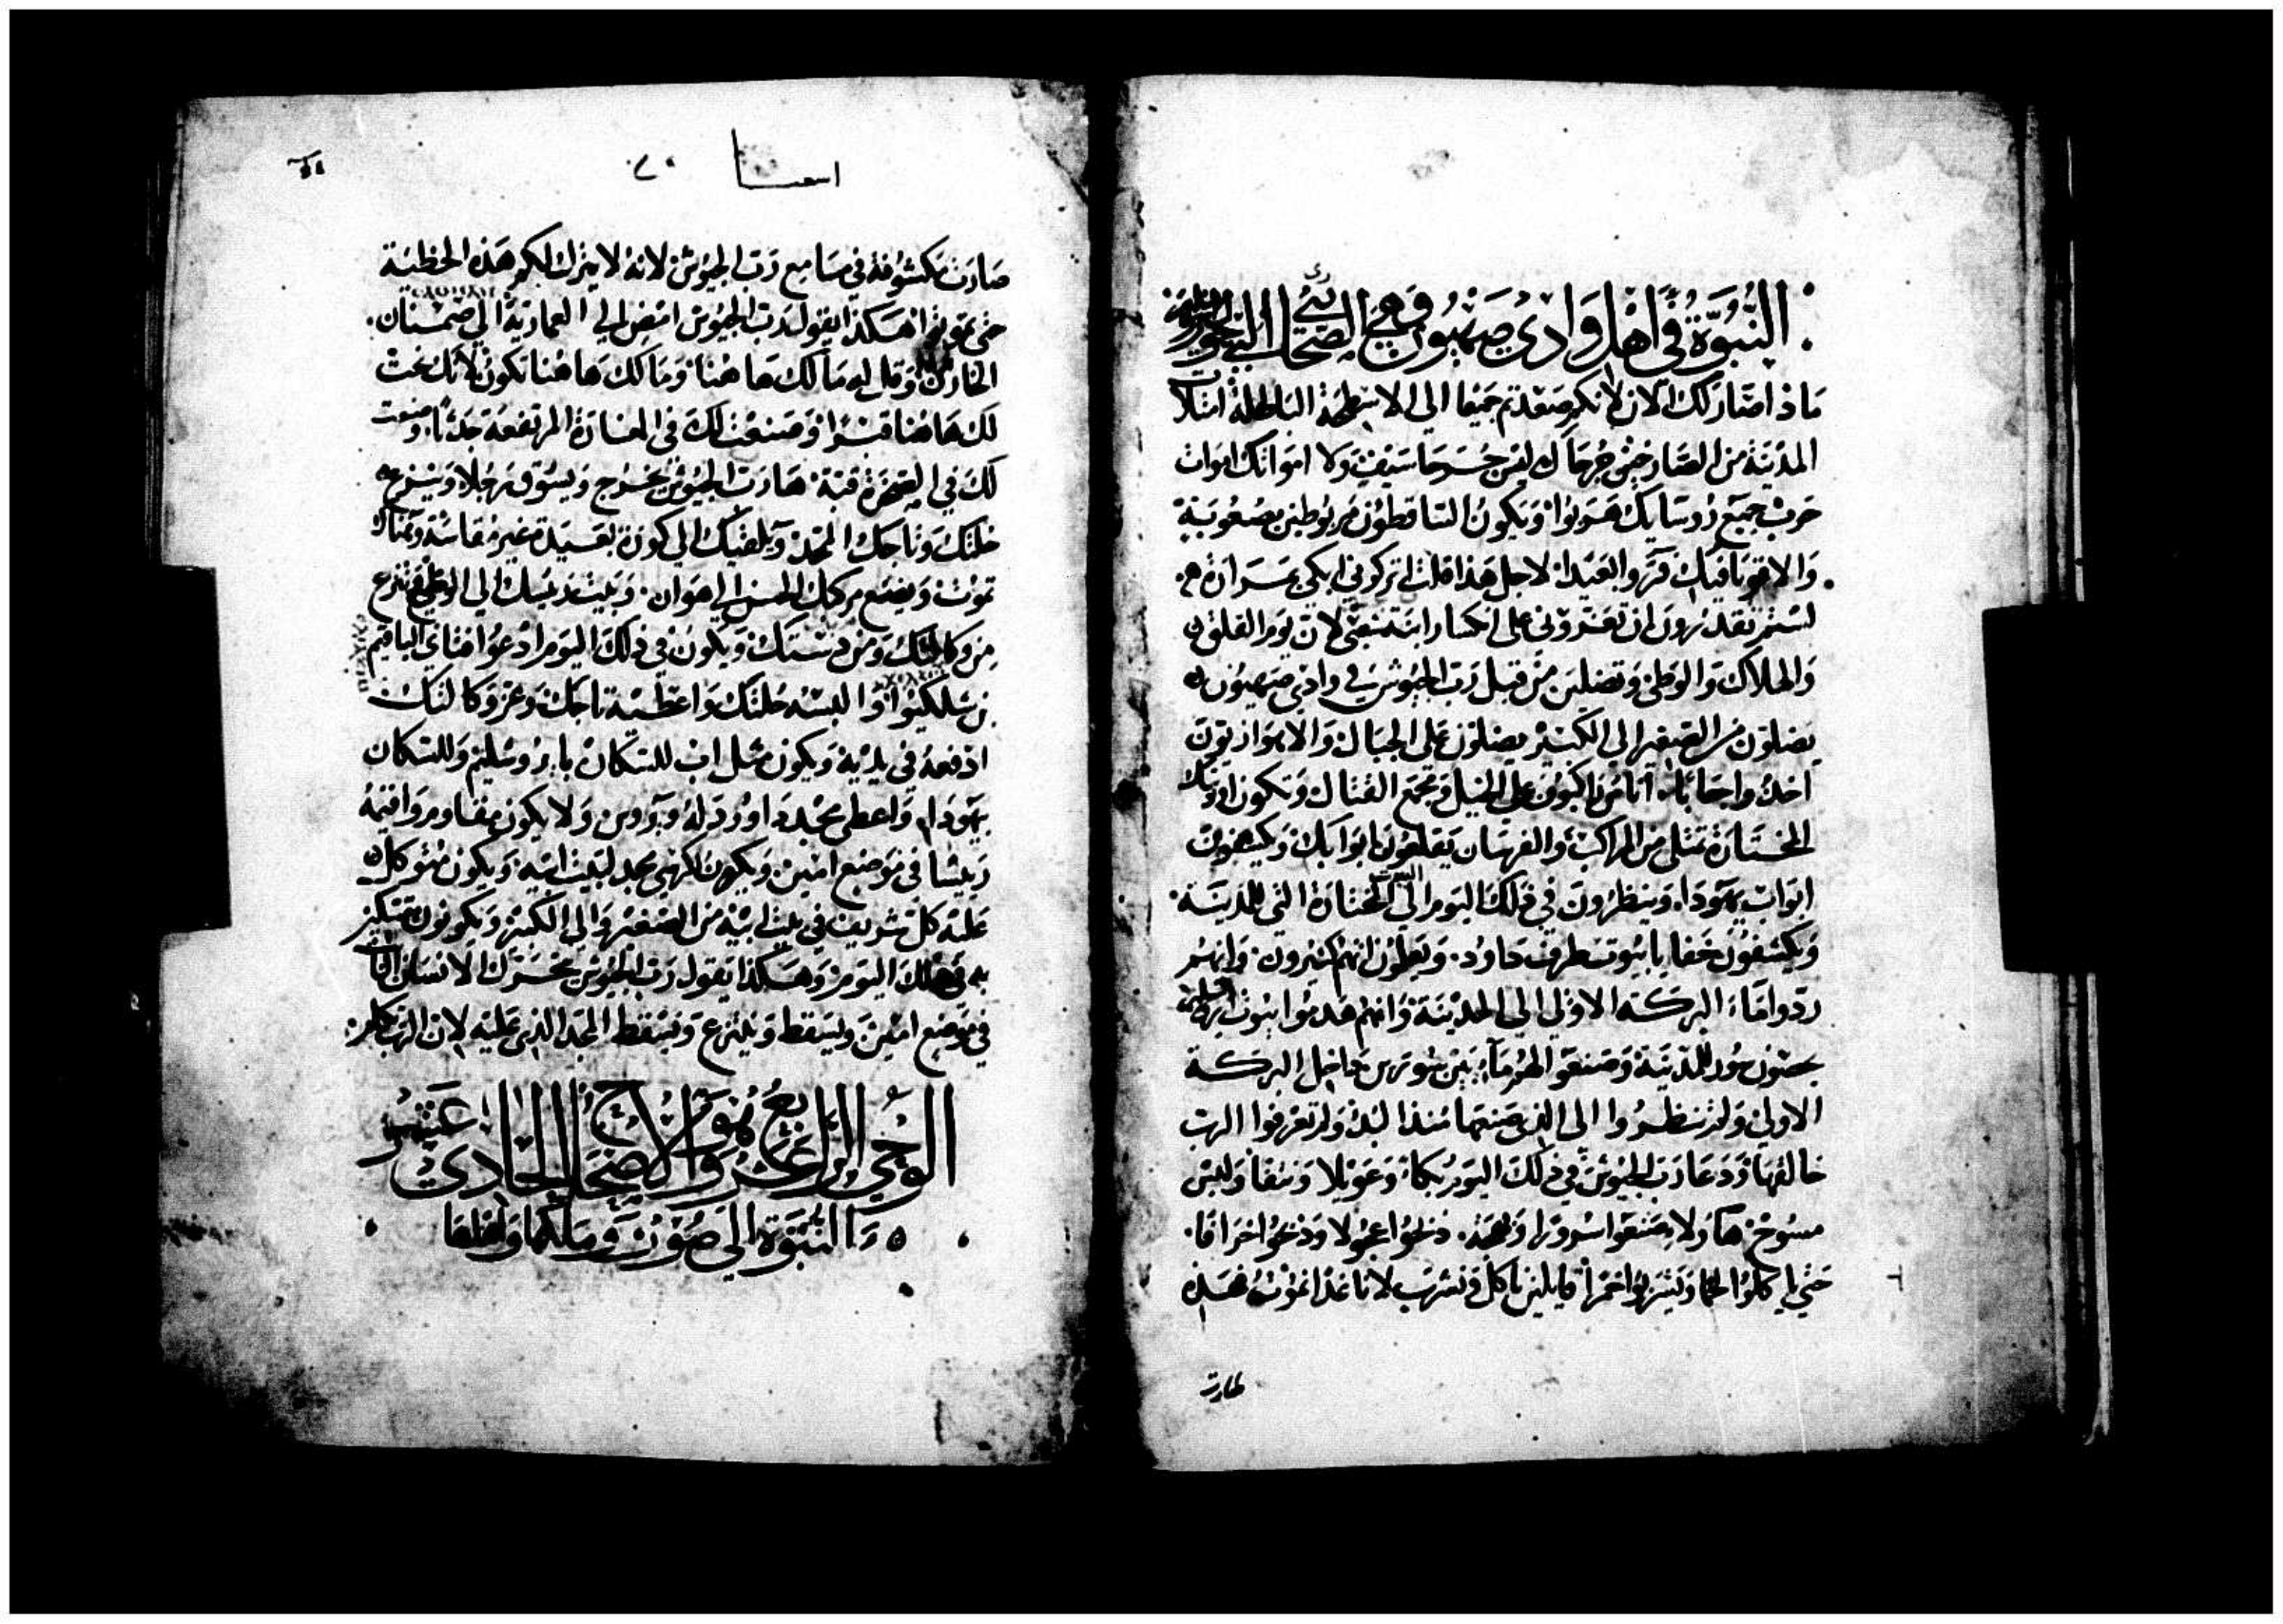 النبوة في اهل وادي صهيون وهي الاصحاح
ماذا صار لك الان لانكم صعدتم جميعا الي الاسطحة الباطلة امتلأ
المدينة من الصارخين جرحاك ليس جرحا سيف ولا امواتك اموات
حرب جميع روسايك هربوا ويكون الساقطون مربوطين بصعوبة
والاقويا فيك فروا بعيدا لاجل هذا قلت اتركوني ابكي بمرارة
لستم تقدرون ان تعزوني علي انكسار ابنة شعبي لان يوم القلق
والهلاك والوطي وتضليل من قبل رب الجيوش في وادي صهيون
يضلون من الصغير الي الكبير يضلون علي الجبال والايواز يون
اخدوا جعابا اناس راكبون علي الخيل وجمع القتال وتكون اوديتك
المختارة تمتلي من المراكب والفرسان يقلعون ابوابك ويكشفون
ابواب يهودا وينظرون في ذلك اليوم الي المختارة التي للمدينة
ويكشفون خفايا بيوت طرف داود ويعلمون انهم كثيرون وانهم
ردوا ماء البركة الاولي الي المدينة وانهم هدموا بيوت يروشليم
بحصون سور المدينة وصنعوا لهم ماء بين سورين داخل البركة
الاولي ولم تنظروا الي الذي صنعها منذ البدء ولم تعرفوا الرب
خالقها ودعا رب الجيوش في ذلك اليوم بكاء وعويلا ونتفا ولبس
مسوح هاولا صنعوا سرورا وبهجة ذبحوا عجولا وذبحوا خرافا
حتي ياكلوا لحما ويشربوا خمرا قايلين ناكل ونشرب لاننا غدا نموت فهذه
صارت
اسعيا
صارت مكشوفة في مسامع رب الجيوش لانه لا يترك لكم هذه الخطية
حتي تموتوا هكذا يقول رب الجيوش امض الي العمادية الي صمسنان
الخازن وقال له مالك هاهنا ومالك هاهنا تكون لانك نحت
لك هاهنا قبرا وصنعت لك في المغارة المرتفعة جدثا وصوت
لك في الصخرة قبة ها رب الجيوش يخرج ويسوق رجلا وينزع
حلتك وتاجك المجد ويلقيك الي كورة بعيدة غير مقاسة وهناك
تموت ويضع مركبك الحسن الي هوان وبيت رئيسك الي الوطي وتنزع
من وكالتك ومن رتبتك ويكون في ذلك اليوم ادعوا فتاي الياقيم
بن شلكيوا والبسه حلتك واعطيه تاجك وعز وكالتك
ادفعه في يديه ويكون مثل اب للسكان بايروشليم وللسكان
يهودا واعطي مجد داود له ويروس ولا يكون مقاوم واقيمه
رييسا في موضع امين ويكون لكرسي مجد لبيت ابيه ويكون متوكل
عليه كل شريف في بيت ابيه من الصغير والي الكبير ويكونون متمسكين
به في ذلك اليوم وهكذا يقول رب الجيوش يتحرك الانسان الثابت
في موضع امين ويسقط وينزع ويسقط المجد الذي عليه لان الرب تكلم
الوحي الرابع عشر وهو الاصحاح الحادي عشر
والنبوة الي صور وملكها وافظها